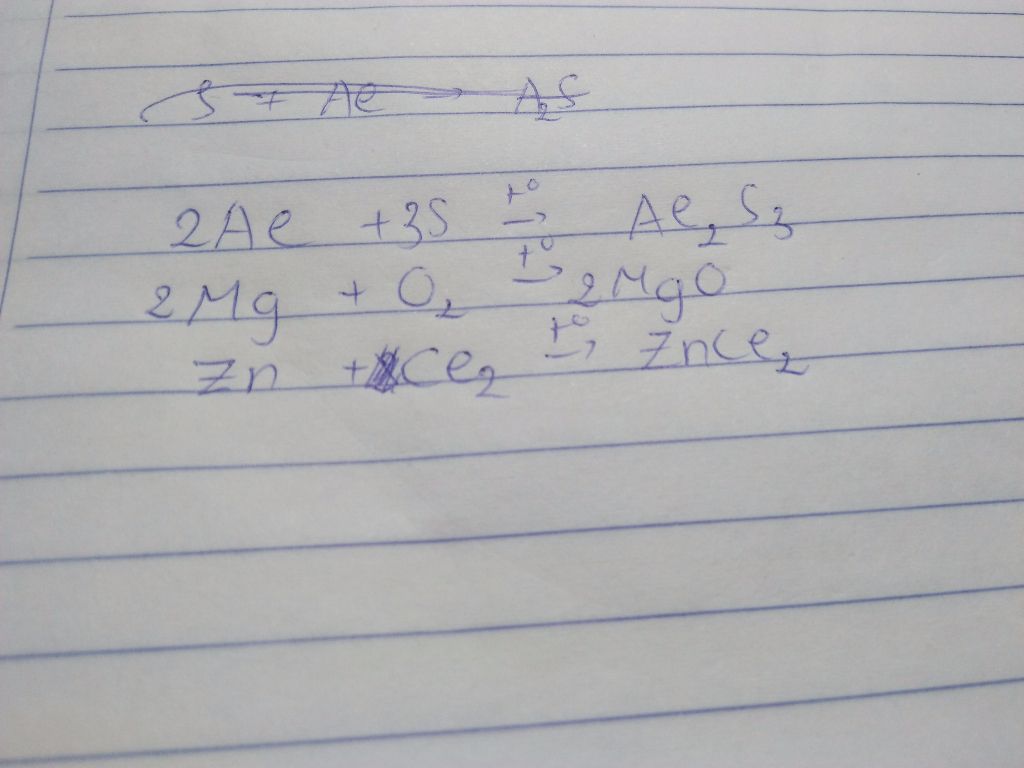 S + Al → A₂S
2Al + 3S t° → Al₂S₃
2Mg + O₂ t° → 2MgO
Zn + Cl₂ t° → ZnCl₂